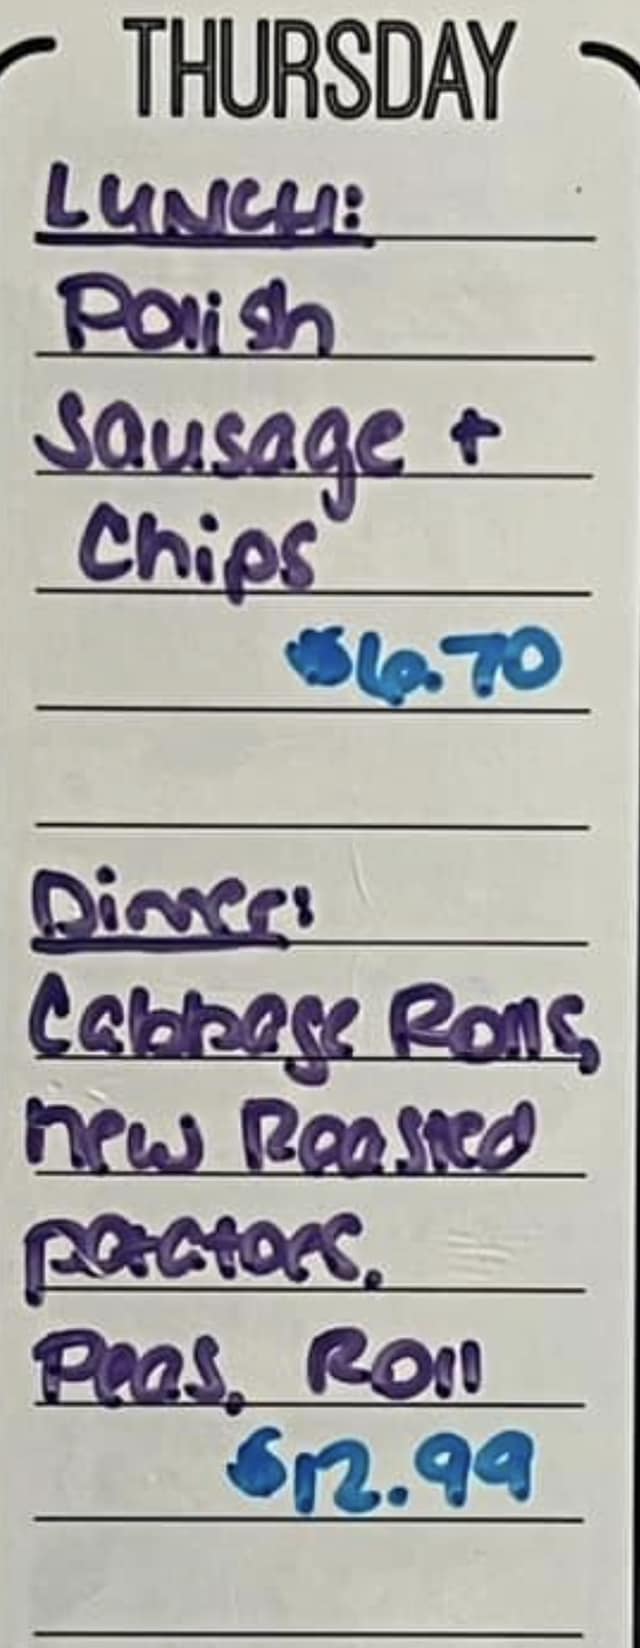 THURSDAY
LUNCH:
Polish
Sausage +
Chips
$6.70
Dinner:
Cabbage Rolls,
new Roasted
potatoes,
Peas, Roll
$12.99